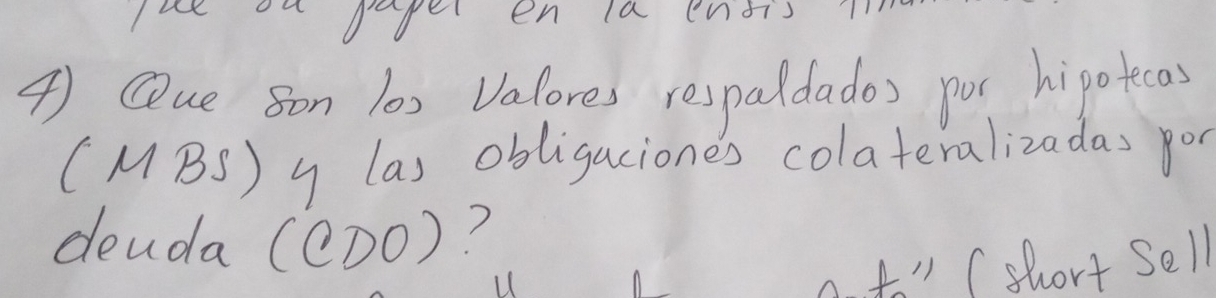 papel en la crisis
4) Que son los Valores respaldados por hipotecas
(MBS) y las obligaciones colateralizadas por
deuda (CDO)?
(short Sell